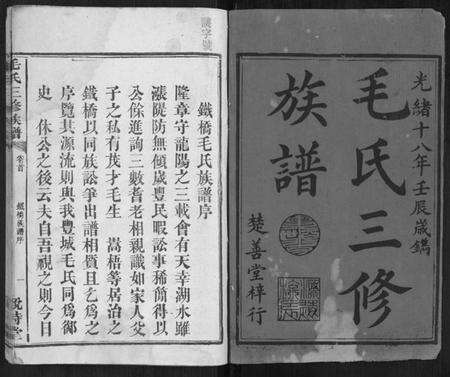 光緒十八年壬辰歲鐫
毛氏三修
族譜
楚善堂梓行
鐵橋毛氏族譜序
隆章守龍陽之三載會有天幸湖水雖
漲隄防無傾歲豐民暇訟事稀簡得以
公餘進詢三數耆老相親識如家人父
子之私有茂才毛生 嵩梧等居治之
鐵橋以同族訟爭出譜相質且乞為之
序覽其源流則與我豐城毛氏同為鄭
史 休公之後云夫自吾視之則今日
毛氏三修族譜
卷首
鐵橋族譜序
一
說詩堂